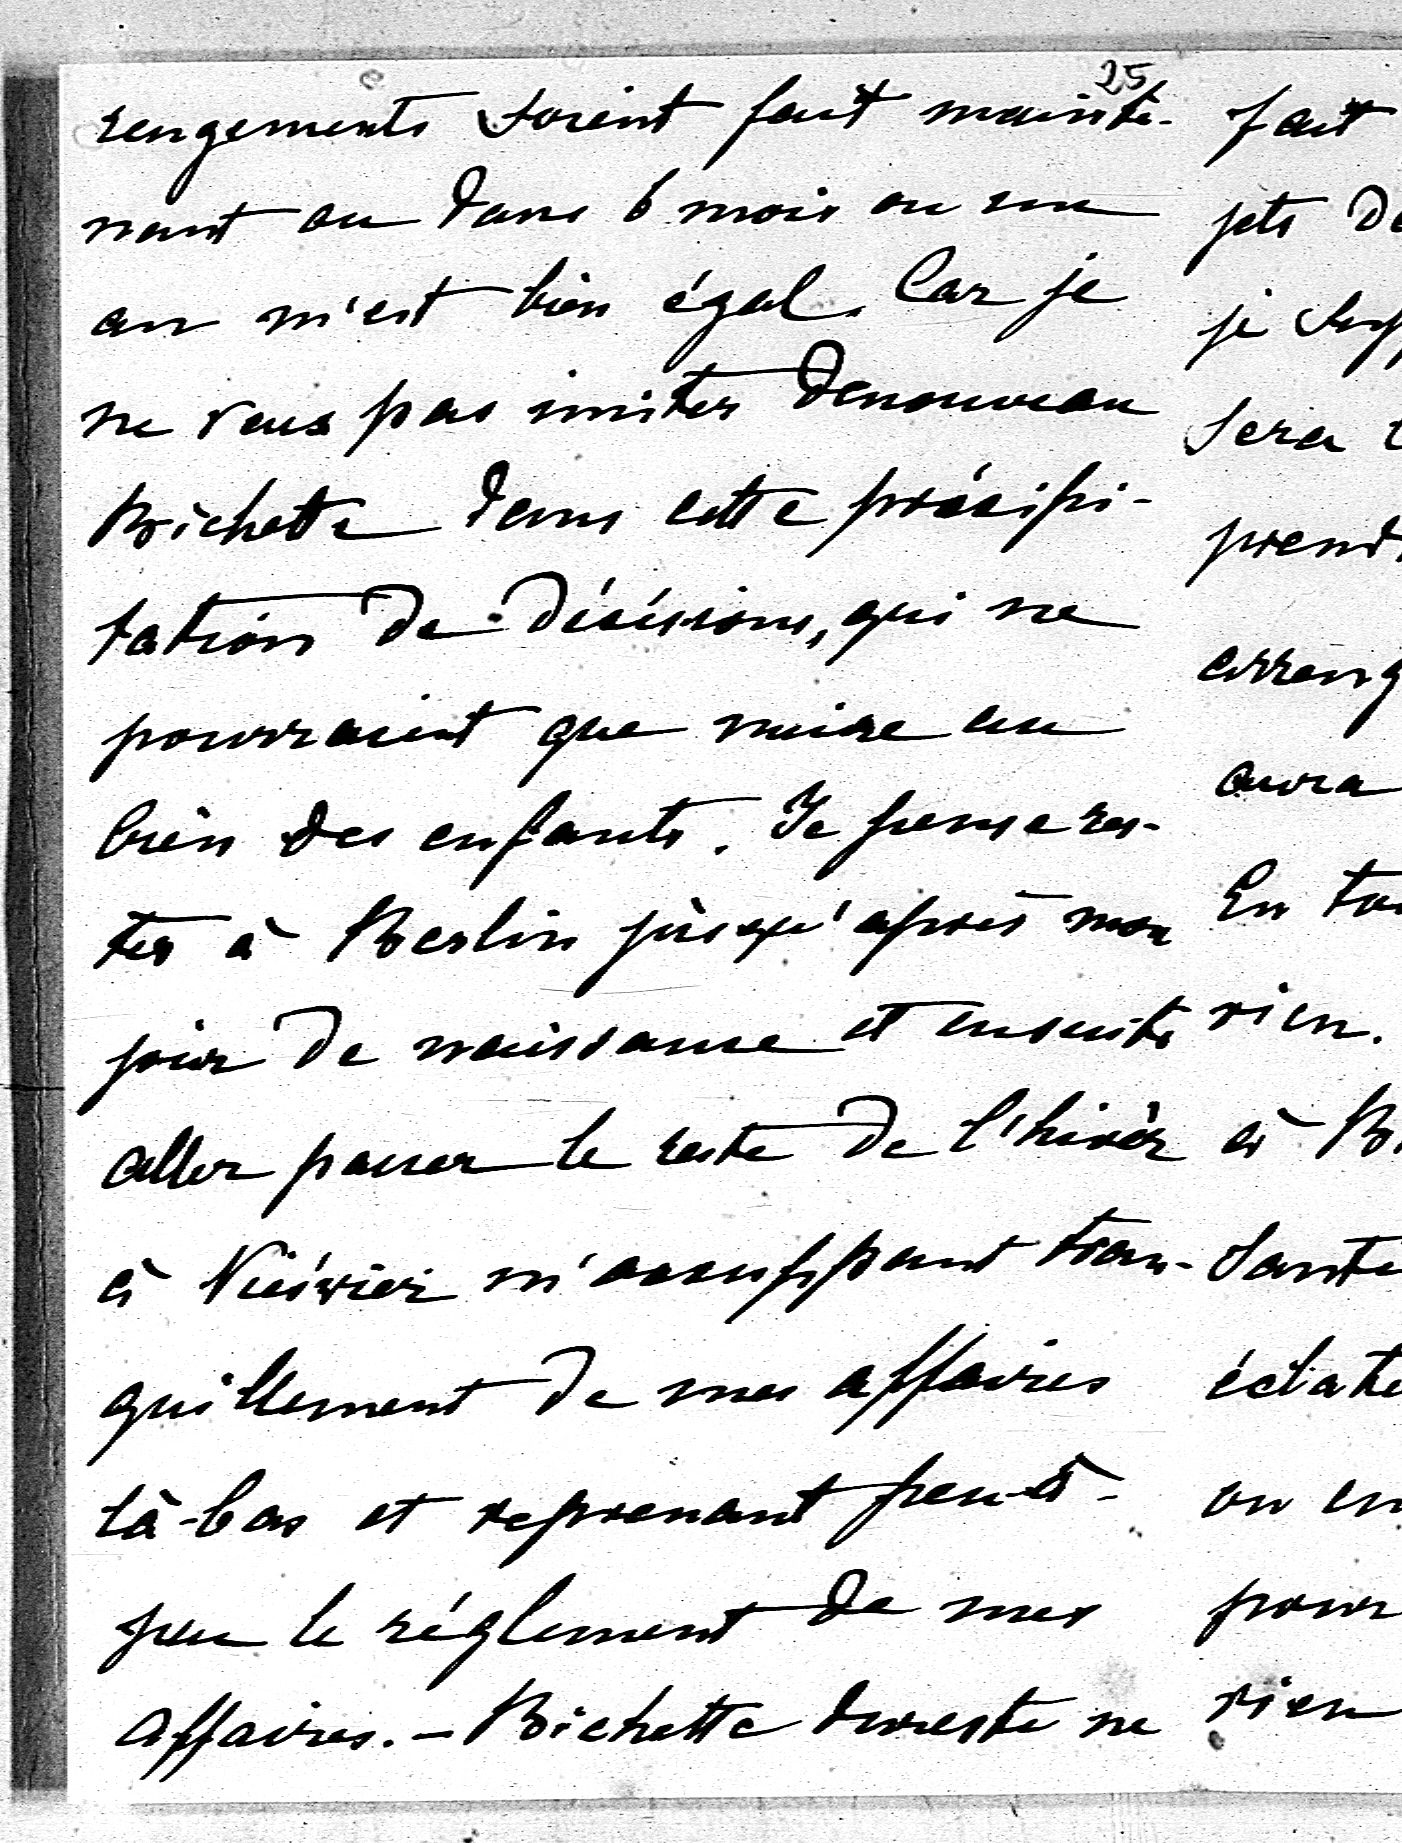 25
rengements soient fait mainte-
nant ou dans 6 mois ou un
an m'est bien égal. Car je
ne veux pas imiter denouveau
Bichette dans cette précipi-
tation de décisions, qui ne
pourraient que nuire au
bien des enfants. Je pense res-
ter à Berlin jusqu'après mon
jour de naissance et ensuite
aller passer le reste de l'hivèr
à Niéśwież m'occuppant tran-
quillement de mes affaires
là-bas et reprenant peu-à-
peu le réglement de mes
affaires. – Bichette dureste ne
fait
jets de
je supp
sera
prend
arrang
aura
En tou
rien.
à B
Santé
éclate
on en
pour
rien